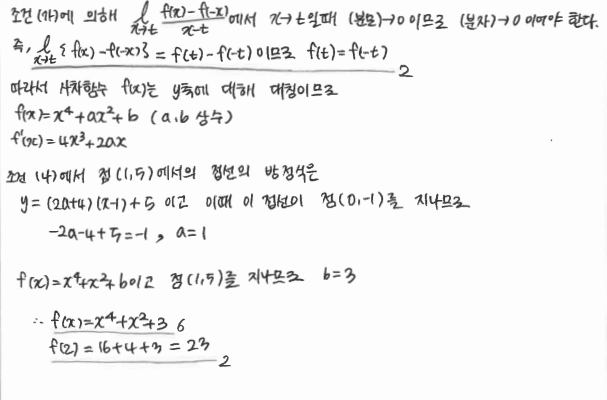 조건 (가)에 의해 lim x→t f(x)-f(-x)/x-t 에서 x→t일때 (분모)→0 이므로 (분자)→0 이어야 한다.
즉, lim x→t {f(x)-f(-x)} = f(t)-f(-t) 이므로 f(t)=f(-t)
2
따라서 사차함수 f(x)는 y축에 대해 대칭이므로
f(x)=x⁴+ax²+b (a,b 상수)
f'(x)=4x³+2ax
조건 (나)에서 점(1,5)에서의 접선의 방정식은
y=(2a+4)(x-1)+5 이고 이때 이 접선이 점(0,-1)를 지나므로
-2a-4+5=-1, a=1
f(x)=x⁴+x²+b이고 점(1,5)를 지나므로 b=3
∴ f(x)=x⁴+x²+3 6
f(2)=16+4+3=23
2